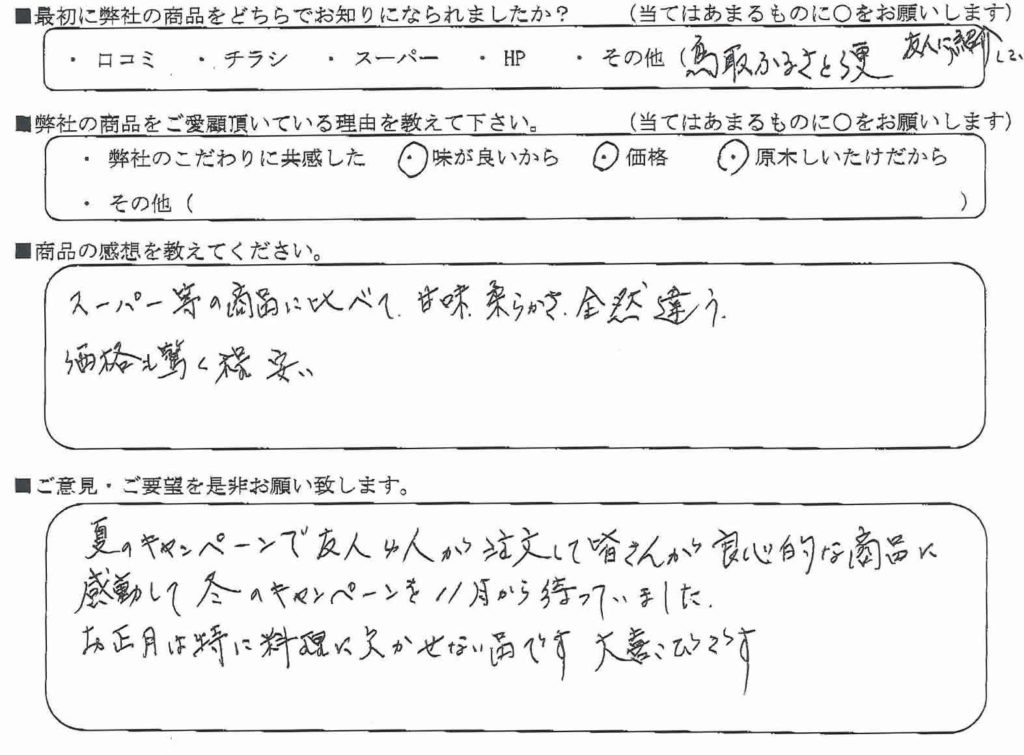 ■最初に弊社の商品をどちらでお知りになられましたか？ （当てはあまるものに○をお願いします）
・ 口コミ ・ チラシ ・ スーパー ・ HP ・ その他（鳥取ふるさと便 友人に紹介
■弊社の商品をご愛顧頂いている理由を教えて下さい。 （当てはあまるものに○をお願いします）
・ 弊社のこだわりに共感した ⊙味が良いから ⊙価格 ⊙原木しいたけだから
・ その他（ ）
■商品の感想を教えてください。
スーパー等の商品に比べて、甘味、柔らかさ、全然違う、
価格も驚く程安い
■ご意見・ご要望を是非お願い致します。
夏のキャンペーンで友人4人から注文して皆さんから良心的な商品に
感動して冬のキャンペーンを11月から待っていました、
お正月は特に料理に欠かせない品です 大喜びです